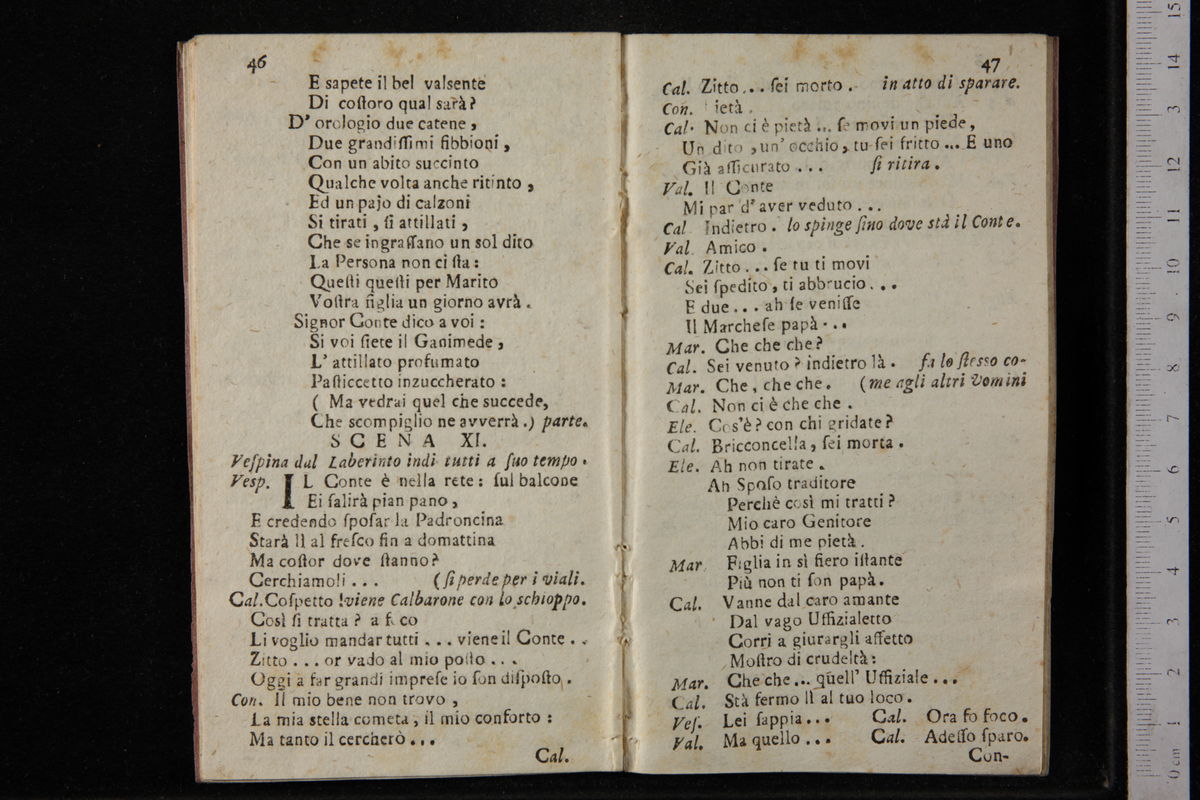 46
E sapete il bel valsente
Di coſtoro qual sarà?
D' orologio due catene,
Due grandiſſimi fibbioni,
Con un abito succinto
Qualche volta anche ritinto,
Ed un pajo di calzoni
Si tirati, ſi attillati,
Che se ingraſſano un sol dito
La Persona non ci ſta:
Queſti queſti per Marito
Voſtra figlia un giorno avrà.
Signor Conte dico a voi:
Si voi ſiete il Ganimede,
L' attillato profumato
Paſticcetto inzuccherato:
( Ma vedrai quel che succede,
Che scompiglio ne avverrà.) parte.
SCENA XI.
Veſpina dal Laberinto indi tutti a ſuo tempo.
Vesp. IL Conte è nella rete: ſul balcone
Ei ſalirà pian pano,
E credendo ſpoſar la Padroncina
Starà lì al freſco fin a domattina
Ma coſtor dove ſtanno?
Cerchiamoli... (ſi perde per i viali.
Cal. Coſpetto! viene Calbarone con lo schioppo.
Così ſi tratta? a co
Li voglio mandar tutti... viene il Conte..
Zitto... or vado al mio poſto...
Oggi a far grandi impreſe io ſon diſpoſto.
Con. Il mio bene non trovo,
La mia stella cometa, il mio conforto:
Ma tanto il cercherò...
Cal.
47
Cal. Zitto... ſei morto. in atto di sparare.
Con. ietà.
Cal. Non ci è pietà... ſe movi un piede,
Un dito, un' occhio, tu ſei fritto... E uno
Già aſſicurato... ſi ritira.
Val. Il Conte
Mi par d' aver veduto...
Cal Indietro. lo spinge ſino dove stà il Conte.
Val. Amico.
Cal. Zitto... ſe tu ti movi
Sei ſpedito, ti abbrucio...
E due... ah ſe veniſſe
Il Marcheſe papà...
Mar. Che che che?
Cal. Sei venuto? indietro là. fa lo ſteſſo co-
Mar. Che, che che. (me agli altri Uomini
Cal. Non ci è che che.
Ele. Cos'è? con chi gridate?
Cal. Bricconcella, ſei morta.
Ele. Ah non tirate.
Ah Spoſo traditore
Perchè così mi tratti?
Mio caro Genitore
Abbi di me pietà.
Mar. Figlia in sì fiero iſtante
Più non ti ſon papà.
Cal. Vanne dal caro amante
Dal vago Uffizialetto
Corri a giurargli affetto
Moſtro di crudeltà:
Mar. Che che... quell' Uffiziale...
Cal. Stà fermo lì al tuo loco.
Veſ. Lei ſappia... Cal. Ora fo foco.
Val. Ma quello... Cal. Adeſſo ſparo.
Con-